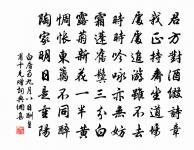 君方對酒綴詩章
我正持齋坐道場
處處追遊雖不去
時時吟詠亦無妨
霜蓬舊鬢三分白
露菊新花一半黃
惆悵東籬不同醉
陶家明日是重陽
白居易九月八日酬皇
甫十見贈詞典網集